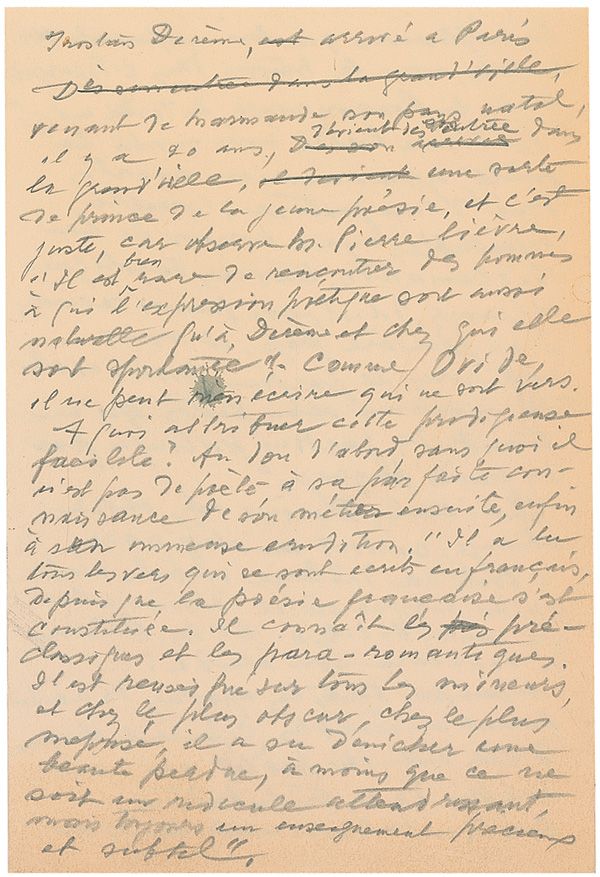 Tristan Derème, est arrivé à Paris
Dès son entrée dans la grand'ville,
venant de Marmande son pays natal,
il y a 20 ans,
devient dès l'entrée dans
la grand'ville, il devient une sorte
de prince de la jeune poésie, et c'est
juste, car observe M. Pierre Lièvre,
"Il est bien rare de rencontrer des hommes
à qui l'expression poétique soit aussi
naturelle qu'à Derème et chez qui elle
soit spontanée". Comme Ovide,
il ne peut rien écrire qui ne soit vers.
A quoi attribuer cette prodigieuse
facilité? Au don d'abord sans quoi il
n'est pas de poète à sa parfaite con-
naissance de son métier ensuite, enfin
à son immense érudition. "Il a lu
tous les vers qui se sont écrits en français,
depuis que la poésie française s'est
constituée. Il connaît les pré-
classiques et les para-romantiques.
Il est renseigné sur tous les mineurs,
et chez le plus obscur, chez le plus
méprisé, il a su dénicher une
beauté perdue, à moins que ce ne
soit un ridicule attendrissant,
mais toujours un enseignement précieux
et subtil".